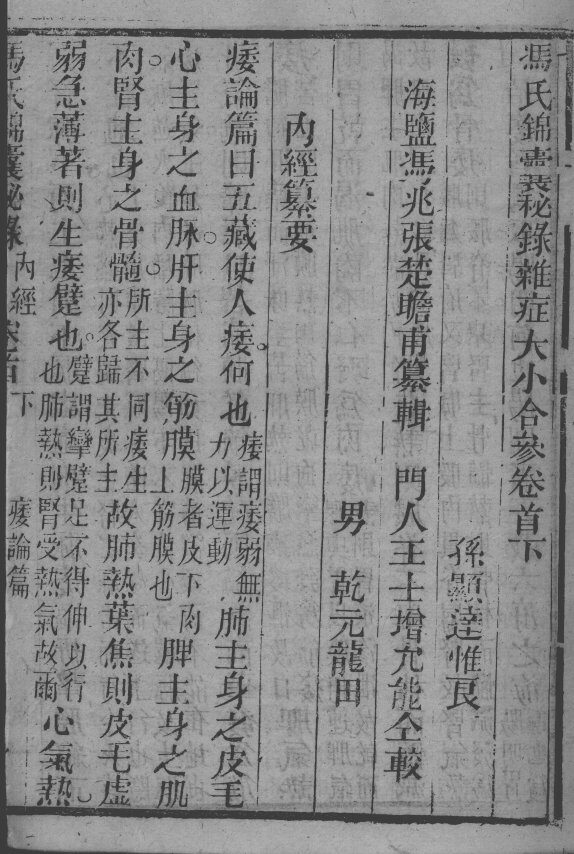 馮氏錦囊秘錄雜症大小合參卷首下
孫 顯達惟良
海鹽馮兆張楚瞻甫纂輯 門人王士增允能仝較
男 乾元龍田
內經纂要
痿論篇曰五藏使人痿何也痿謂痿弱無力以運動肺主身之皮毛
心主身之血脉肝主身之筋膜膜者皮下肉上筋膜也脾主身之肌
肉腎主身之骨髓所主不同痿生亦各歸其所主故肺熱葉焦則皮毛虛
弱急薄著則生痿躄也躄謂攣躄足不得伸以行也肺熱則腎受熱氣故爾心氣熱
馮氏錦囊秘錄 內經 卷首下 痿論篇